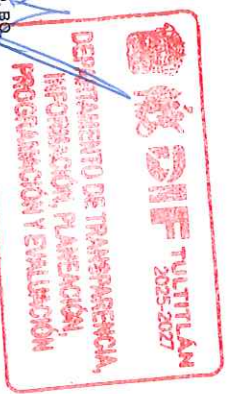 DIF TULTITLÁN
2025-2027
DEPARTAMENTO DE TRANSPARENCIA,
INFORMACIÓN, PLANEACIÓN,
PROGRAMACIÓN Y EVALUACIÓN